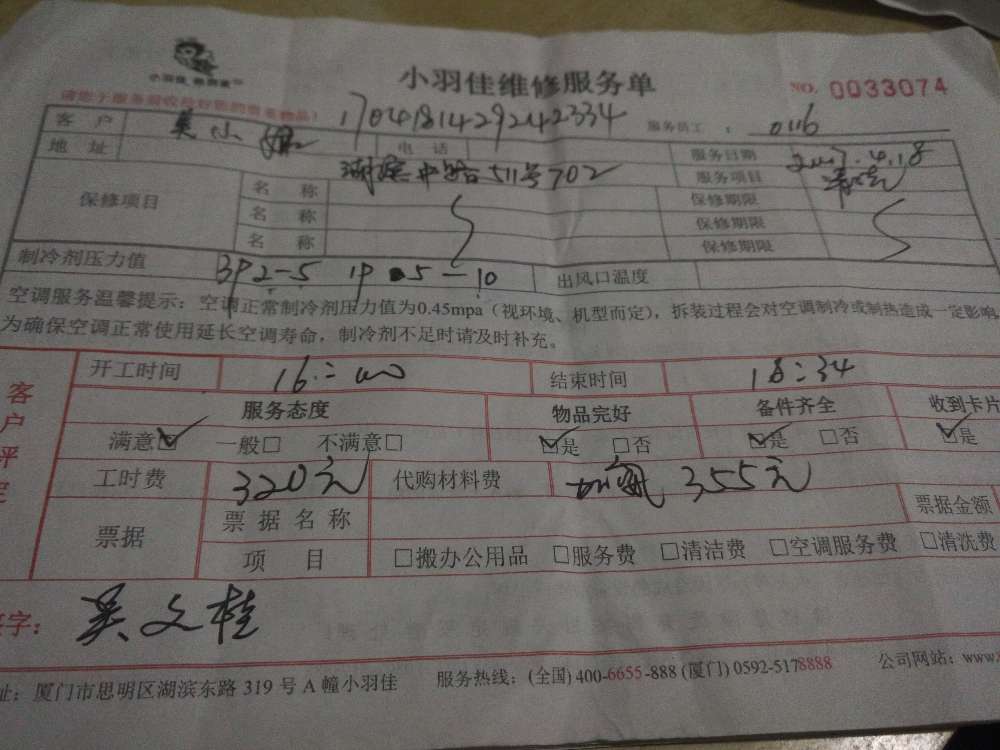 小羽佳维修服务单 NO. 0033074
请您于服务前收好您的贵重物品!
17041814292142334 服务员工: 0116
客户 吴小姐 电话 服务日期 2017.4.18
地址 湖滨中路511号702 服务项目 清洗
保修项目 名称 保修期限
名称 保修期限
名称 保修期限
制冷剂压力值 3P 2-5 1P 5-10 出风口温度
空调服务温馨提示:空调正常制冷剂压力值为0.45mpa(视环境、机型而定),拆装过程会对空调制冷或制热造成一定影响,
为确保空调正常使用延长空调寿命,制冷剂不足时请及时补充。
客户评定
开工时间 16:00 结束时间 18:34
服务态度 物品完好 备件齐全 收到卡片
满意☑ 一般□ 不满意□ ☑是 □否 ☑是 □否 ☑是
工时费 320元 代购材料费 加氟 355元
票据 票据名称 票据金额
项目 □搬办公用品 □服务费 □清洁费 □空调服务费 □清洗费
签字: 吴文桂
址:厦门市思明区湖滨东路319号A幢小羽佳 服务热线:(全国)400-6655-888 (厦门) 0592-5178888 公司网站:www.